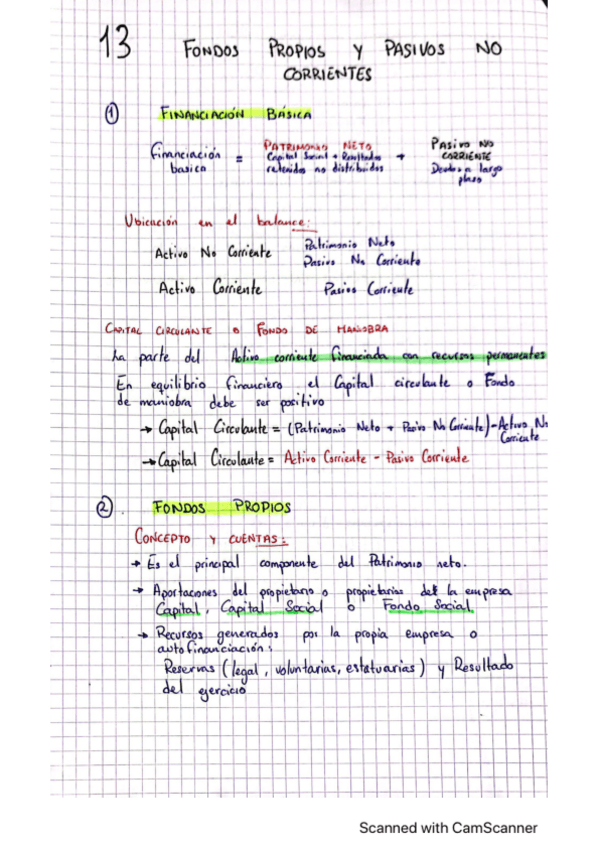 13 FONDOS PROPIOS Y PASIVOS NO
CORRIENTES
① FINANCIACIÓN BÁSICA
Financiación basica = PATRIMONIO NETO Capital Social + Resultados retenidos no distribuidos + Pasivo NO CORRIENTE Deudas a largo plazo
Ubicación en el balance:
Activo No Corriente Patrimonio Neto
Pasivo No Corriente
Activo Corriente Pasivo Corriente
CAPITAL CIRCULANTE O FONDO DE MANIOBRA
La parte del Activo corriente financiada con recursos permanentes
En equilibrio financiero el Capital circulante o Fondo
de maniobra debe ser positivo
→ Capital Circulante = (Patrimonio Neto + Pasivo No Corriente) - Activo No
Corriente
→ Capital Circulante = Activo Corriente - Pasivo Corriente
② . FONDOS PROPIOS
CONCEPTO Y CUENTAS:
→ Es el principal componente del Patrimonio neto.
→ Aportaciones del propietario o propietarios de la empresa
Capital, Capital Social o Fondo Social
→ Recursos generados por la propia empresa o
autofinanciación:
Reservas (legal, voluntarias, estatuarias) y Resultado
del ejercicio
Scanned with CamScanner